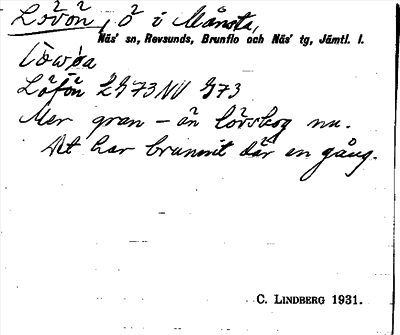 Lövön, ö i Månsta,
Näs' sn, Revsunds, Brunflo och Näs' tg, Jämtl. l.
Löfön 2973NV 973
Mer gran – än lövskog nu.
Det har brunnit där en gång.
C. LINDBERG 1931.